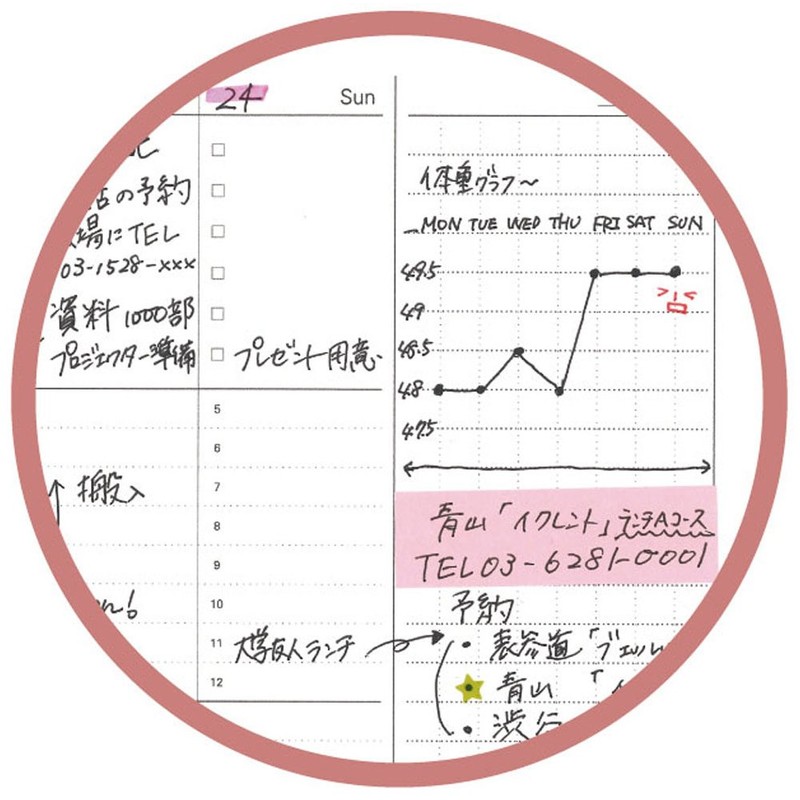 の予約
場にTEL
03-1528-xxx
資料1000部
プロジェクター準備
搬入
24 Sun
プレゼント用意
5
6
7
8
9
10
11 大学友人ランチ
12
体重グラフ〜
MON TUE WED THU FRI SAT SUN
49.5
49
48.5
48
47.5
青山「イクレント」ランチAコース
TEL03-6281-0001
予約
・表参道「ヴェル
青山「イ
・渋谷